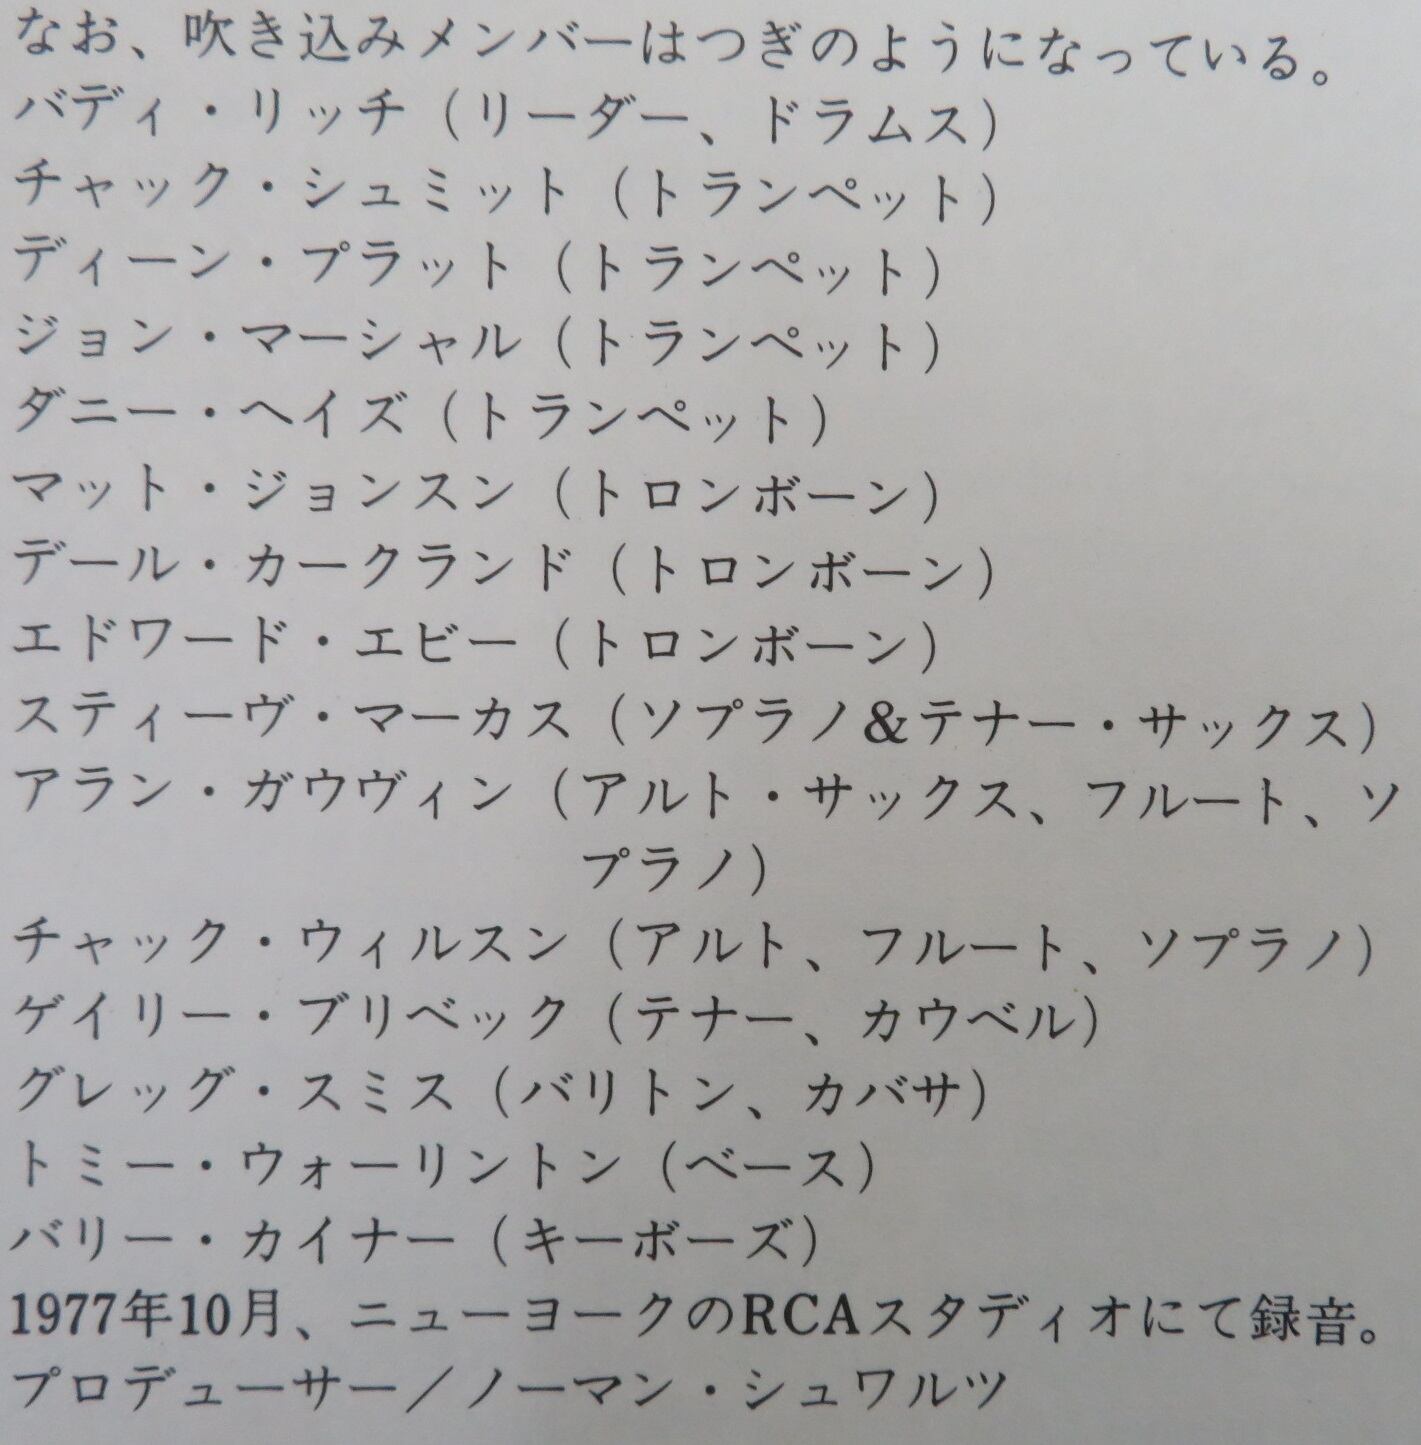 なお、吹き込みメンバーはつぎのようになっている。
バディ・リッチ（リーダー、ドラムス）
チャック・シュミット（トランペット）
ディーン・プラット（トランペット）
ジョン・マーシャル（トランペット）
ダニー・ヘイズ（トランペット）
マット・ジョンスン（トロンボーン）
デール・カークランド（トロンボーン）
エドワード・エビー（トロンボーン）
スティーヴ・マーカス（ソプラノ&テナー・サックス）
アラン・ガウヴィン（アルト・サックス、フルート、ソ
プラノ）
チャック・ウィルスン（アルト、フルート、ソプラノ）
ゲイリー・ブリベック（テナー、カウベル）
グレッグ・スミス（バリトン、カバサ）
トミー・ウォーリントン（ベース）
バリー・カイナー（キーボーズ）
1977年10月、ニューヨークのRCAスタディオにて録音。
プロデューサー／ノーマン・シュワルツ